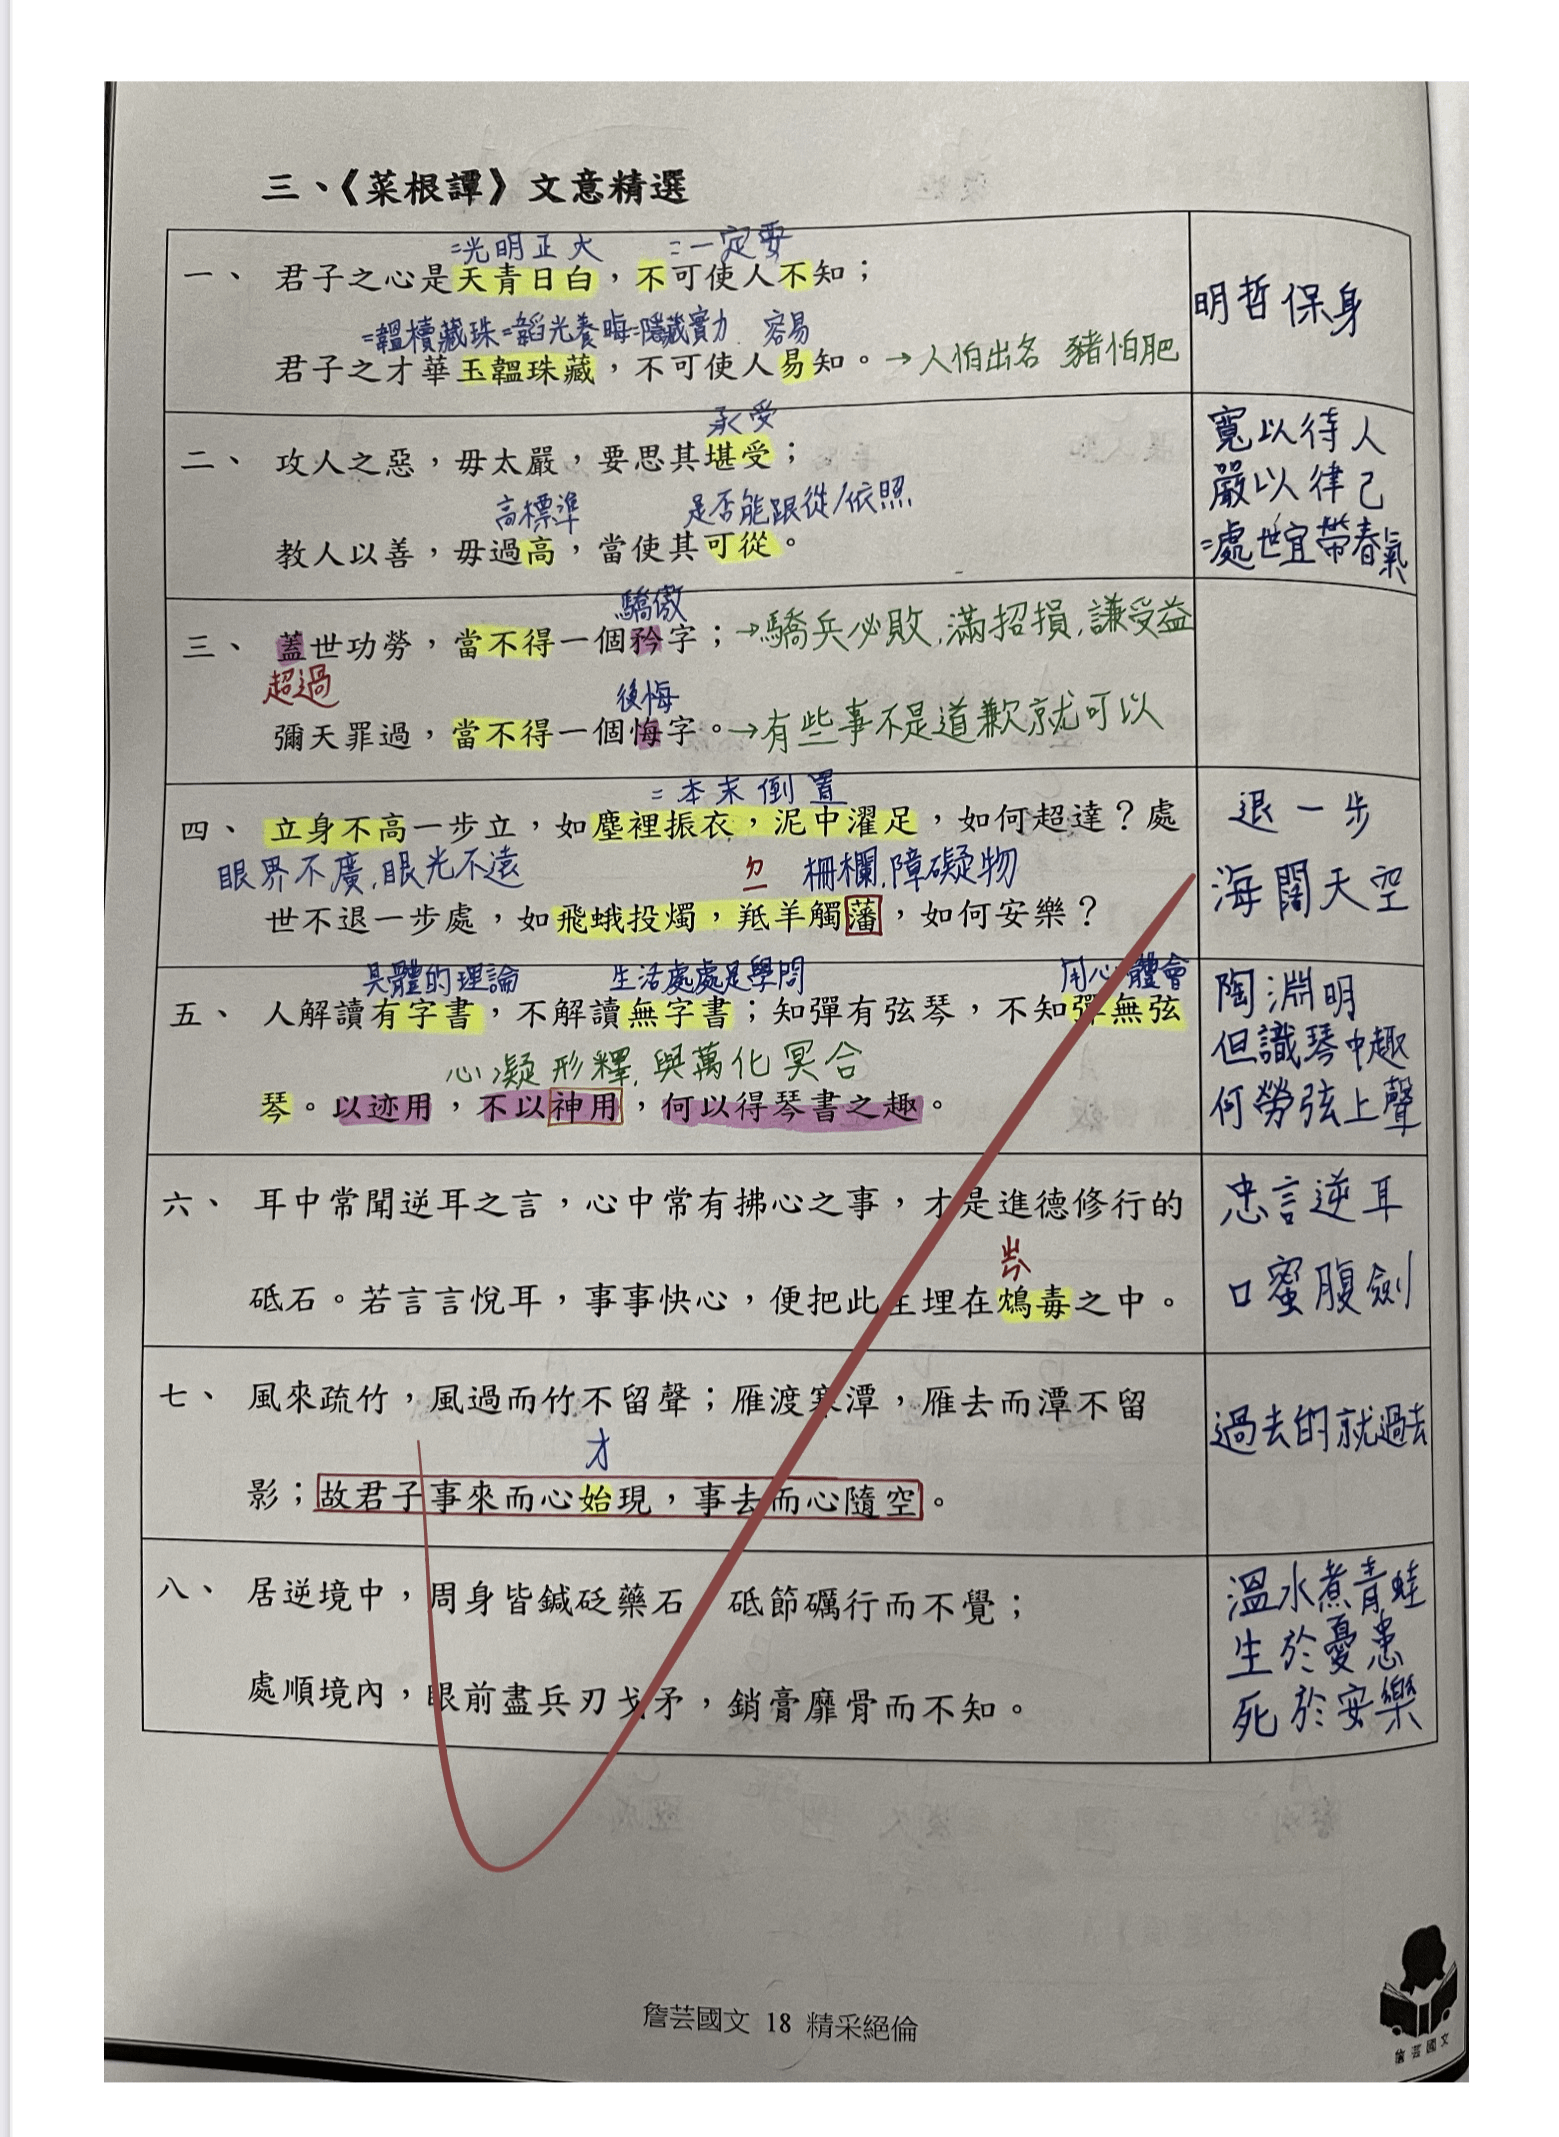 三、《菜根譚》文意精選
=光明正大 =一定要
一、君子之心是天青日白，不可使人不知；
明哲保身
=韞櫝藏珠=韜光養晦=隱藏實力 容易
君子之才華玉韞珠藏，不可使人易知。→人怕出名 豬怕肥
承受
二、攻人之惡，毋太嚴，要思其堪受；
寬以待人
嚴以律己
=處世宜帶春氣
高標準 是否能跟從/依照
教人以善，毋過高，當使其可從。
驕傲
三、蓋世功勞，當不得一個矜字；→驕兵必敗,滿招損,謙受益
超過 後悔
彌天罪過，當不得一個悔字。→有些事不是道歉就可以
=本末倒置
四、立身不高一步立，如塵裡振衣，泥中濯足，如何超達？處
退一步
海闊天空
眼界不廣,眼光不遠 ㄉ 柵欄,障礙物
世不退一步處，如飛蛾投燭，羝羊觸藩，如何安樂？
具體的理論 生活處處是學問 用心體會
五、人解讀有字書，不解讀無字書；知彈有弦琴，不知彈無弦
陶淵明
但識琴中趣
何勞弦上聲
心凝形釋,與萬化冥合
琴。以迹用，不以神用，何以得琴書之趣。
六、耳中常聞逆耳之言，心中常有拂心之事，才是進德修行的
忠言逆耳
口蜜腹劍
砥石。若言言悅耳，事事快心，便把此生埋在鴆毒之中。
七、風來疏竹，風過而竹不留聲；雁渡寒潭，雁去而潭不留
過去的就過去
才
影；故君子事來而心始現，事去而心隨空。
八、居逆境中，周身皆鍼砭藥石 砥節礪行而不覺；
溫水煮青蛙
生於憂患
死於安樂
處順境內，眼前盡兵刃戈矛，銷膏靡骨而不知。
詹芸國文 18 精采絕倫
詹芸國文